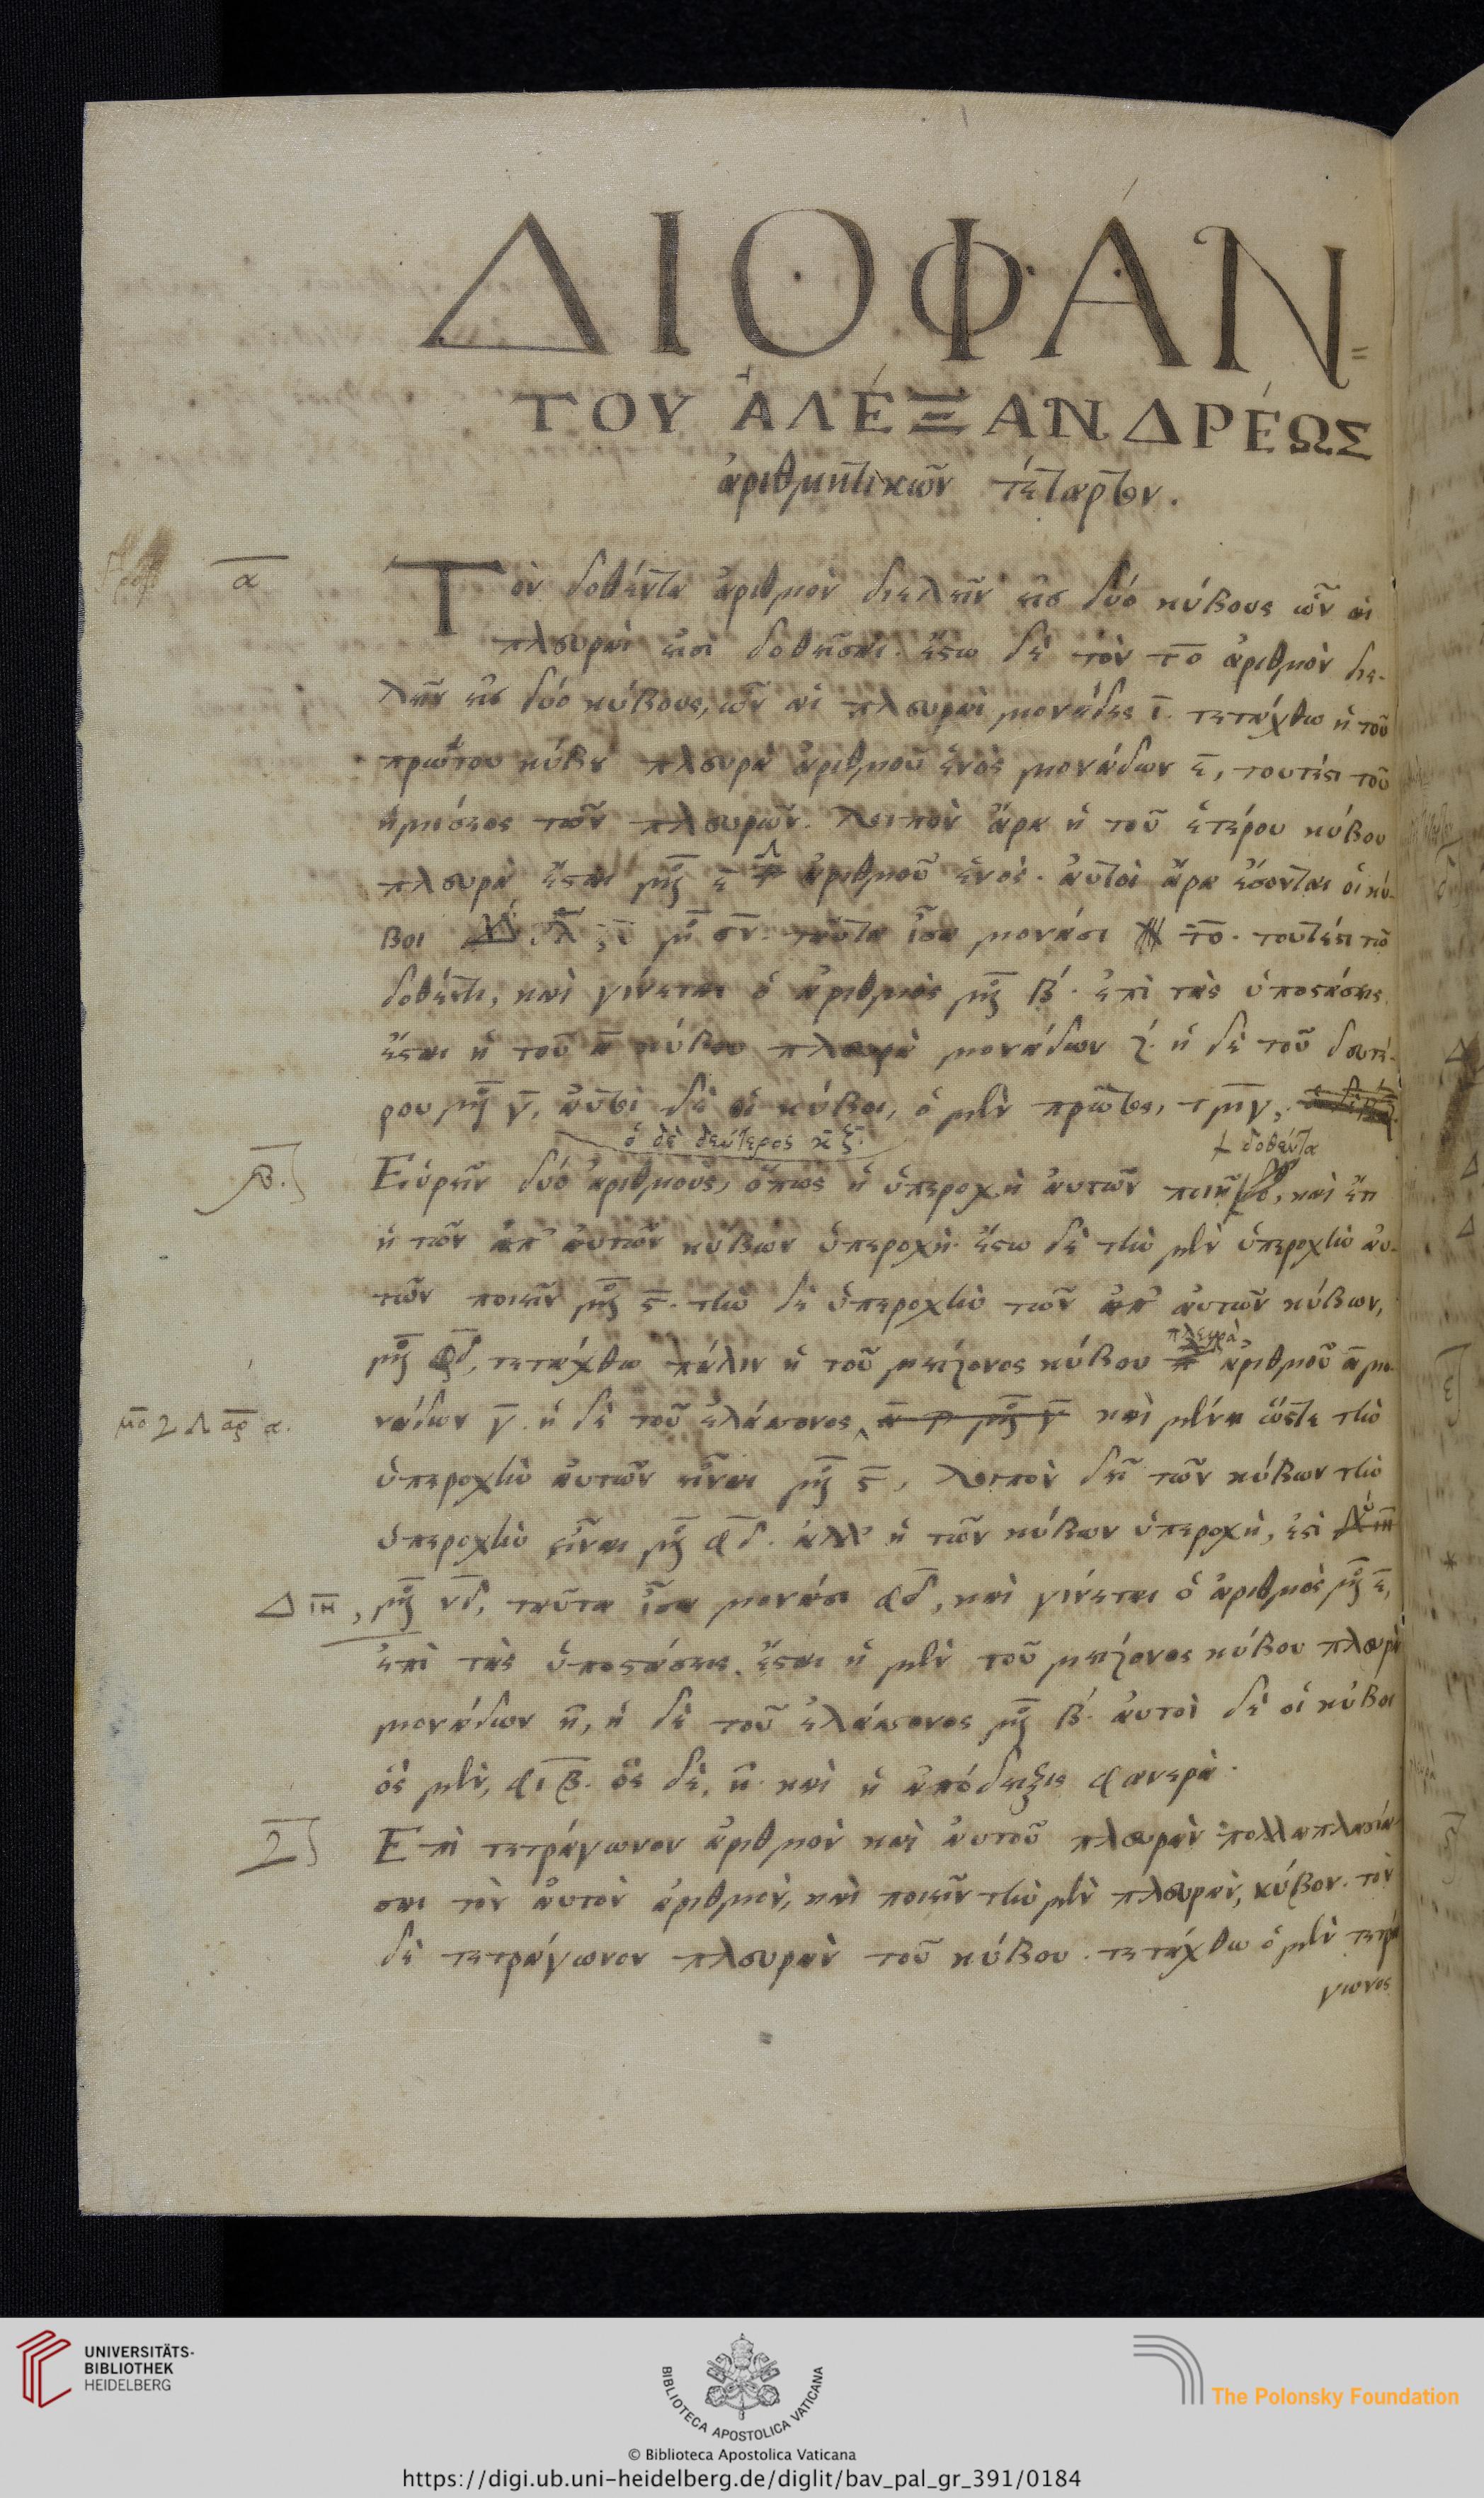 ΔΙΟΦΑΝ=
ΤΟΥ ἈΛΕΞΑΝΔΡΈΩΣ
ἀριθμητικῶν τέταρτον.
α
Τὸν δοθέντα ἀριθμὸν διελεῖν εἰς δύο κύβους ὧν αἱ
πλευραὶ εἰσὶ δοθεῖσαι. ἔστω δὲ τὸν τ̅ο̅ ἀριθμὸν διε-
λεῖν εἰς δύο κύβους, ὧν αἱ πλευραὶ μονάδες ι̅. τετάχθω ἡ τοῦ
πρώτου κύβου πλευρὰ ἀριθμοῦ ἑνὸς μονάδων ε̅, τουτέστι τοῦ
ἡμίσεος τῶν πλευρῶν. λοιπὸν ἄρα ἡ τοῦ ἑτέρου κύβου
πλευρὰ ἔσται μο̅ ε̅ Λ ἀριθμοῦ ἑνὸς. αὐτοὶ ἄρα ἔσονται οἱ κύ-
βοι μο̅ σ̅ν̅. ταῦτα ἴσα μονάσι τ̅ο̅. τουτέστι τῷ
δοθέντι, καὶ γίνεται ὁ ἀριθμὸς μο̅ β. ἐπὶ τὰς ὑποστάσεις
ἔσται ἡ τοῦ α̅ κύβου πλευρὰ μονάδων ζ. ἡ δὲ τοῦ δευτέ-
ρου μο̅ γ̅, αὐτοὶ δὲ οἱ κύβοι, ὁ μὲν πρῶτος, τμγ,
ὁ δὲ δεύτερος κ̅ζ̅.
+ δοθέντα
β.
Εὑρεῖν δύο ἀριθμοὺς, ὅπως ἡ ὑπεροχὴ αὐτῶν ποιῇ, καὶ ἔτι
ἡ τῶν ἀπ' αὐτῶν κύβων ὑπεροχὴ. ἔστω δὲ τὴν μὲν ὑπεροχὴν αὐ-
τῶν ποιεῖν μο̅ ϛ̅. τὴν δὲ ὑπεροχὴν τῶν ἀπ' αὐτῶν κύβων,
μο̅ φ̅δ̅, τετάχθω πάλιν ἡ τοῦ μείζονος κύβου πλευρὰ ἀριθμοῦ α̅ μο-
μο̅ γ Λ αρ̅ α.
νάδων γ̅. ἡ δὲ τοῦ ἐλάσσονος καὶ μένει ὥστε τὴν
ὑπεροχὴν αὐτῶν εἶναι μο̅ ϛ̅, λοιπὸν δεῖ τῶν κύβων τὴν
ὑπεροχὴν εἶναι μο̅ φ̅δ̅. ἀλλ' ἡ τῶν κύβων ὑπεροχὴ, ἐστὶ
Δ ι̅η̅, μο̅ ν̅δ̅, ταῦτα ἴσα μονάσι φ̅δ̅, καὶ γίνεται ὁ ἀριθμὸς μο̅ ε̅,
ἐπὶ τὰς ὑποστάσεις. ἔσται ἡ μὲν τοῦ μείζονος κύβου πλευρὰ
μονάδων η̅, ἡ δὲ τοῦ ἐλάσσονος μο̅ β. αὐτοὶ δὲ οἱ κύβοι
ὃς μὲν, φ̅ι̅β̅. ὃς δὲ, η̅. καὶ ἡ ἀπόδειξις φανερὰ.
γ
Ἐπὶ τετράγωνον ἀριθμὸν καὶ αὐτοῦ πλευρὰν πολλαπλασιά-
σαι τὸν αὐτὸν ἀριθμὸν, καὶ ποιεῖν τὴν μὲν πλευρὰν, κύβον. τὸν
δὲ τετράγωνον πλευρὰν τοῦ κύβου. τετάχθω ὁ μὲν τετρά
γωνος
UNIVERSITÄTS-
BIBLIOTHEK
HEIDELBERG
BIBLIOTECA APOSTOLICA VATICANA
The Polonsky Foundation
© Biblioteca Apostolica Vaticana
https://digi.ub.uni-heidelberg.de/diglit/bav_pal_gr_391/0184